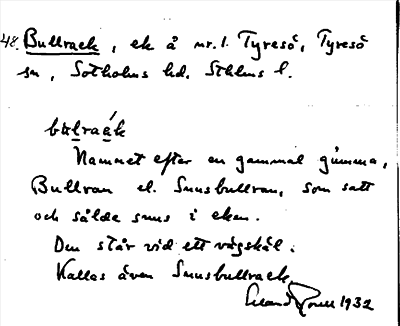 48. Bullraek, ek å nr. 1. Tyresö, Tyresö
sn, Sotholms hd. Sthlms l.
bulraék
Namnet efter en gammal gumma,
Bullran el. Snusbullran, som satt
och sålde snus i eken.
Den står vid ett vägskäl.
Kallas även Snusbullraek.
1932